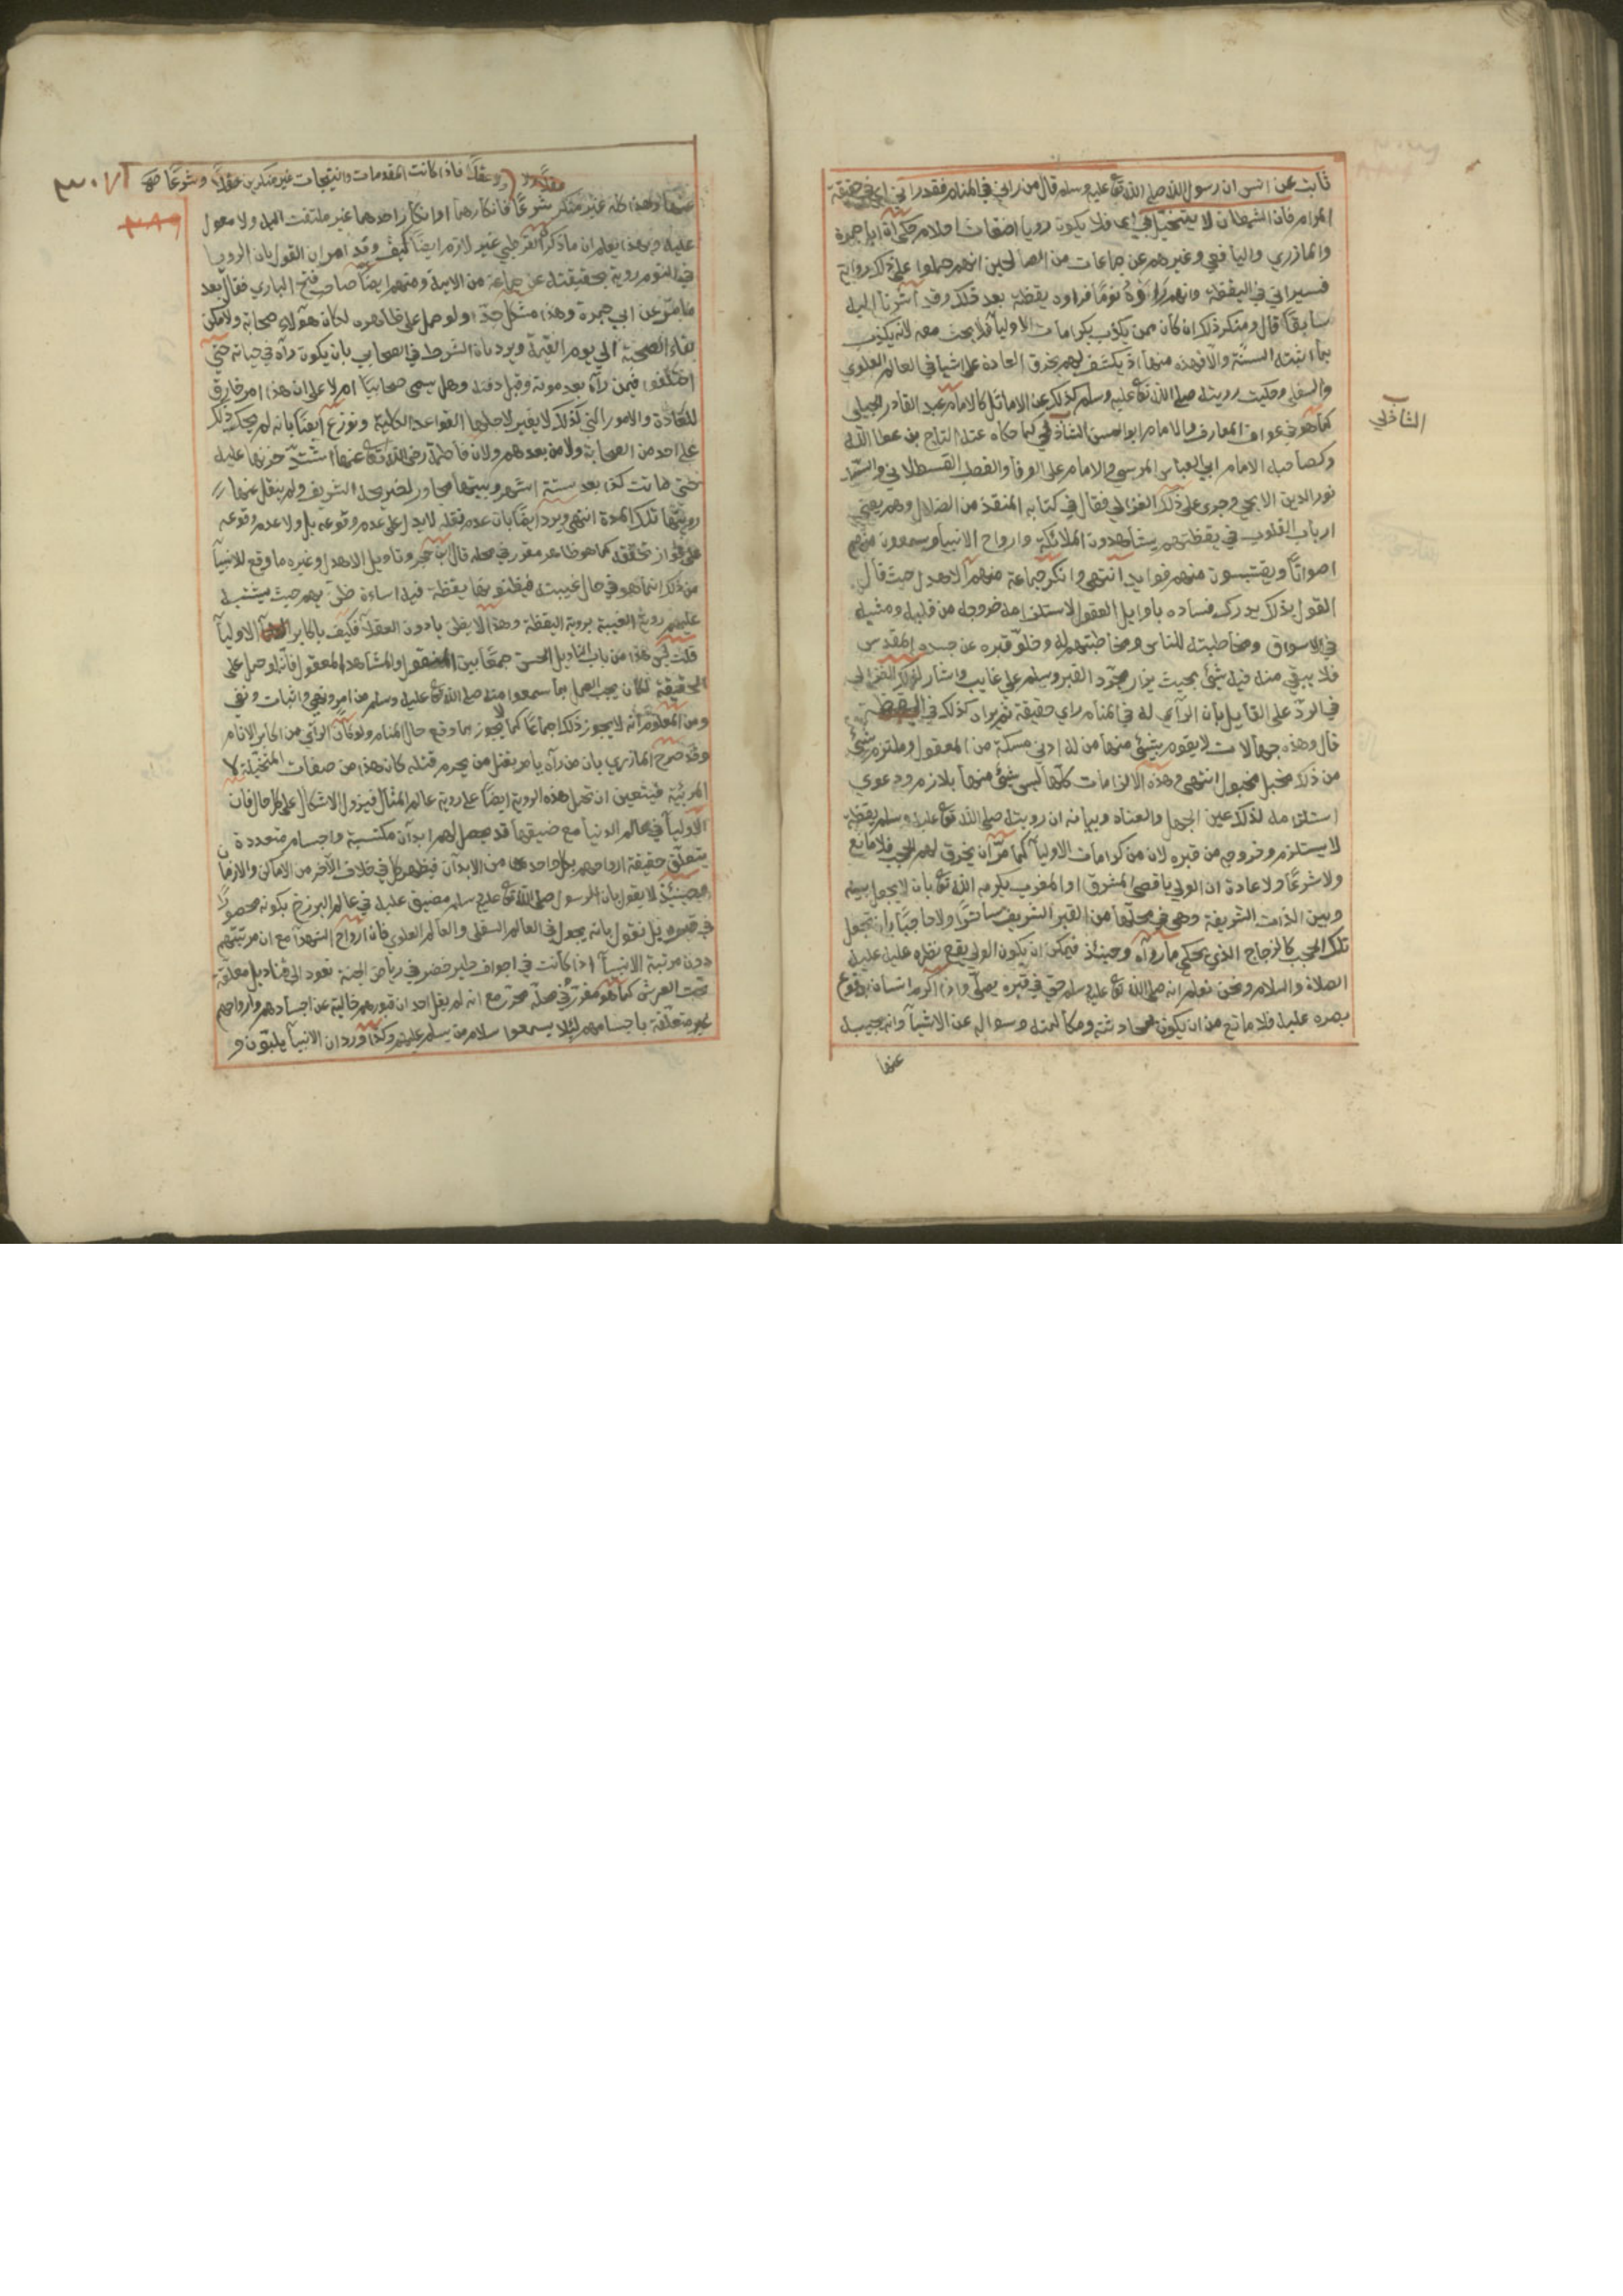 ثابت عن انس ان رسول الله صلى الله تع عليه وسلم قال من راني في المنام فقد راني اي حقيقة
المرام فان الشيطان لا يتخيل بي اي فلا يكون رويا اضغاث احلام حكى ابن ابي جمرة
والمازري واليافعي وغيرهم عن جماعات من الصالحين انهم حملوا على ذلك رواية
فسيراني في اليقظة وانهم راوه نوما فراوه يقظة بعد ذلك وقد اشرنا اليه
سابقا قال ومنكر ذلك ان كان ممن يكذب بكرامات الاوليآ فلا بحث معه لانه يكذب
بما اثبته السنة والا فهذه منها اذ يكشف لهم بخرق العادة على اشيا في العالم العلوي
والسفلي وحكيت رويته صلى الله تع عليه وسلم كذلك عن الاماثل كالامام عبد القادر الجيلي
كما هو في عوارف المعارف والامام ابو الحسن الشاذلي كما حكاه عنه التاج بن عطا الله
الشاذلي
وكصاحبه الامام ابي العباس المرسي والامام على الوفا والقطب القسطلاني والسيد
نور الدين الايجي وجرى على ذلك الغزالي فقال في كتابه المنقذ من الضلال وهم يعني
ارباب القلوب في يقظتهم يشاهدون الملائكة وارواح الانبيآ ويسمعون منهم
اصواتا ويقتبسون منهم فوايد انتهى وانكر جماعة منهم الاهدل حيث قال
القول بذلك يدرك فساده باوايل العقول لاستلزامه خروجه من قبره ومشيه
في الاسواق ومخاطبته للناس ومخاطبتهم له وخلو قبره عن جسده المقدس
فلا يبقي منه فيه شئ بحيث يزار مجرد القبر ويسلم على غايب واشار لذلك القرطبي
في الرد على القايل بان الرآي له في المنام راي حقيقة ثم يراه كذلك في اليقظة
قال وهذه جهالات لا يقوم بشئ منها من له ادنى مسكة من المعقول وملتزم شئ
من ذلك مختل مخبول انتهى وهذه الالزامات كلها ليس شئ منها بلازم ودعوي
استلزامه لذلك عين الجهل والعناد وبيانه ان رويته صلى الله تع عليه وسلم يقظة
لا يستلزم خروجه من قبره لان من كرامات الاوليآ كما مر ان يخرق لهم الحجب فلا مانع
ولا شرعا ولا عادة ان الولي باقصى المشرق او المغرب يكرمه الله تع بان لا يجعل بينه
وبين الذات الشريفة وهي في محلها من القبر الشريف ساترا ولا حاجبا بان تجعل
تلك الحجب كالزجاج الذي يحكي ما ورآه وحينئذ فيمكن ان يكون الولي يقع نظره عليه عليه
الصلاة والسلام ونحن نعلم انه صلى الله تع عليه وسلم حي في قبره يصلي واذا اكرم انسان بوقوع
بصره عليه فلا مانع من ان يكون محادثته ومكالمته وسواله عن الاشيآ وانه يجيبه
عنها
وعقلا فاذا كانت المقدمات والنتيجات غير منكرين عقلا وشرعا صح
عنها وهذا كله غير منكر شرعا فانكارهما او انكار احدهما غير ملتفت اليه ولا معول
عليه وبهذا يعلم ان ما ذكره القرطبي غير لازم ايضا كيف وقد امر ان القول بان الرويا
في النوم روية بحقيقته عن جماعة من الايمة ومنهم ايضا صاحب فتح الباري فقال بعد
ما مر عن ابي جمرة وهذا مشكل جدا ولو حمل على ظاهره لكان هولاء صحابة ولامكن
بقاء الصحبة الي يوم القيمة ويرد بان الشرط في الصحابي بان يكون رآه في حياته حتى
اختلفوا فيمن رآه بعد موته وقبل دفنه وهل يسمى صحابيا ام لا على ان هذا امر خارق
للعادة والامور التي كذلك لا يغير لاجلها القواعد الكلية ونوزع ايضا بانه لم يحك ذلك
على احد من الصحابة ولا من بعدهم ولان فاطمة رضى الله تع عنها اشتد حزنها عليه
حتى ماتت كذا بعد ستة اشهر وبيتها مجاور لضريحه الشريف ولم ينقل عنها
رويتها تلك المدة انتهى ويرد ايضا بان عدم نقله لا يدل على عدم وقوعه بل ولا عدم وقوعه
على جواز تحققه كما هو ظاهر مقرر في محله قال ابن حجر وتاويل الاهدل وغيره ما وقع للانبيآ
من ذلك انما هو في حال غيبته فيظنونها يقظة فيه اساءة ظن بهم حيث يشتبه
عليهم روية الغيبة بروية اليقظة وهذا لا يظن بادون العقلآ فكيف باكابر الاوليآ
قلت ليس هذا من باب التاويل الحسن جمعا بين المنقول والمشاهد المعقول فانه لو حمل على
الحقيقة لكان يجب العمل بما سمعوا منه صلى الله تع عليه وسلم من امر ونهي واثبات ونفي
ومن المعلوم انه لا يجوز ذلك اجماعا كما لا يجوز بما وقع حال المنام ولو كان الرائي من اكابر الانام
وقد صرح المازري بان من رآه يامر بقتل من يحرم قتله كان هذا من صفات المتخيلة لا
المرئية فيتعين ان تحمل هذه الروية ايضا على روية عالم المثال فيزول الاشكال على كل حال فان
الاوليآ في عالم الدنيا مع ضيقها قد يحصل لهم ابدان مكتسبة واجسام متعددة
يتعلق حقيقة ارواحهم بكل واحد من الابدان فيظهر كل في خلاف الآخر من الاماكن والازمان
وحينئذ لا يقول بان الرسول صلى الله تع عليه وسلم مضيق عليه في عالم البرزخ بكونه محصورا
في قبره بل نقول بانه يجول في العالم السفلى والعالم العلوي فان ارواح الشهدآ مع ان مرتبتهم
دون مرتبة الانبيآ اذا كانت في اجواف طير خضر في رياض الجنة تعود الى قناديل معلقة
تحت العرش كما هو مقرر في محله محرر مع انه لم يقل احد ان قبورهم خالية عن اجسادهم وارواحهم
غير متعلقة باجسامهم لئلا يسمعوا سلام من يسلم عليهم وكذا ورد ان الانبيآ يلبون و